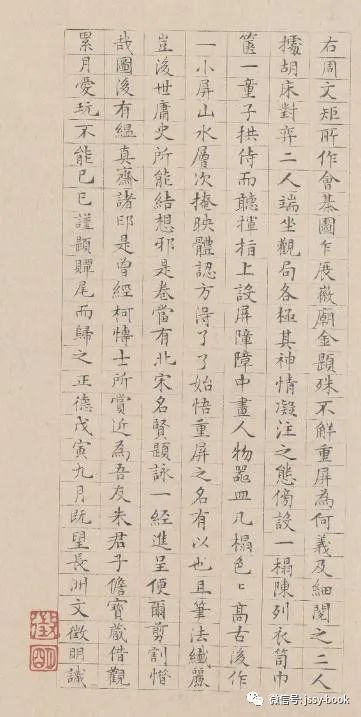 右周文矩所作會棊圖乍展徽廟金題殊不解重屏為何義及細閱之二人
據胡床對弈二人端坐觀局各極其神情凝注之態傍設一榻陳列衣笥巾
篋一童子拱侍而聽揮指上設屏障障中畫人物器皿凡榻色〻高古後作
一小屏山水層次掩映體認方得了了始悟重屏之名有以也且筆法纖麗
豈後世庸史所能結想邪是卷當有北宋名賢題詠一經進呈便爾剪割惜
哉圖後有縕真齋諸印是曾經柯博士所賞近為吾友朱君子儋寶藏借觀
累月愛玩不能已已謹題贉尾而歸之正德戊寅九月既望長洲文徵明識
徵明
微信号: jssy-book